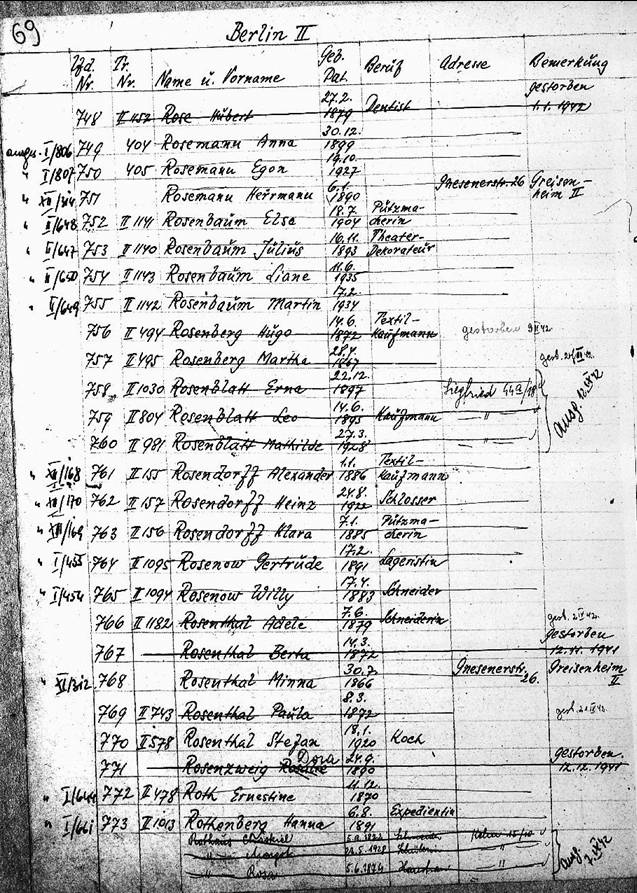 69
Berlin II
Lfd. Nr. Tr. Nr. Name u. Vorname Geb. Dat. Beruf Adresse Bemerkung
748 II 452 Rose Hubert 27.2. 1879 Dentist gestorben 1.1.1942
I/806 749 404 Rosemann Anna 30.12. 1899
" I/807 750 405 Rosemann Egon 19.10. 1927
" 751 Rosemann Herrmann 6.1. 1890 Gnesenerstr. 26 Greisenheim II
" I/648 752 II 1141 Rosenbaum Elsa 18.7 1904 Putzmacherin
" I/647 753 II 1140 Rosenbaum Julius 16.11. 1893 Theater-Dekorateur
" I/650 754 II 1143 Rosenbaum Liane 11.6. 1935
" I/649 755 II 1142 Rosenbaum Martin 17.2. 1934
756 II 494 Rosenberg Hugo 14.6. 1872 Textil-Kaufmann gestorben
757 II 495 Rosenberg Martha gest.
758 II 1030 Rosenblatt Erna 22.12. 1897 Siegfried 44a/18
759 II 804 Rosenblatt Leo 14.6. 1895 Kaufmann "
760 II 981 Rosenblatt Mathilde 27.3. 1928 "
" XII/168 761 II 155 Rosendorff Alexander 1.1. 1886 Textil-Kaufmann
" XII/170 762 II 157 Rosendorff Heinz 24.8. 1922 Schlosser
" XII/169 763 II 156 Rosendorff Klara 7.1. 1885 Putzmacherin
" I/455 764 II 1095 Rosenow Gertrude 17.2. 1891 Lageristin
" I/454 765 II 1094 Rosenow Willy 17.4. 1883 Schneider
766 II 1182 Rosenthal Adele 7.6. 1879 Schneiderin gest.
767 Rosenthal Berta 14.3. 1872 gestorben 12.11.1941
" XI/312 768 Rosenthal Minna 30.7. 1866 Gnesenerstr. 26. Greisenheim II
769 II 743 Rosenthal Paula 8.3. 1872 gest.
770 II 578 Rosenthal Stefan 18.1. 1920 Koch
771 Rosenzweig Dora 24.9. 1890 gestorben 12.12.1941
" 772 II 478 Roth Ernestine 11.12. 1870
" I/661 773 II 1013 Rothenberg Hanna 6.8. 1891 Expedientin
Rosa 5.6.1874 "